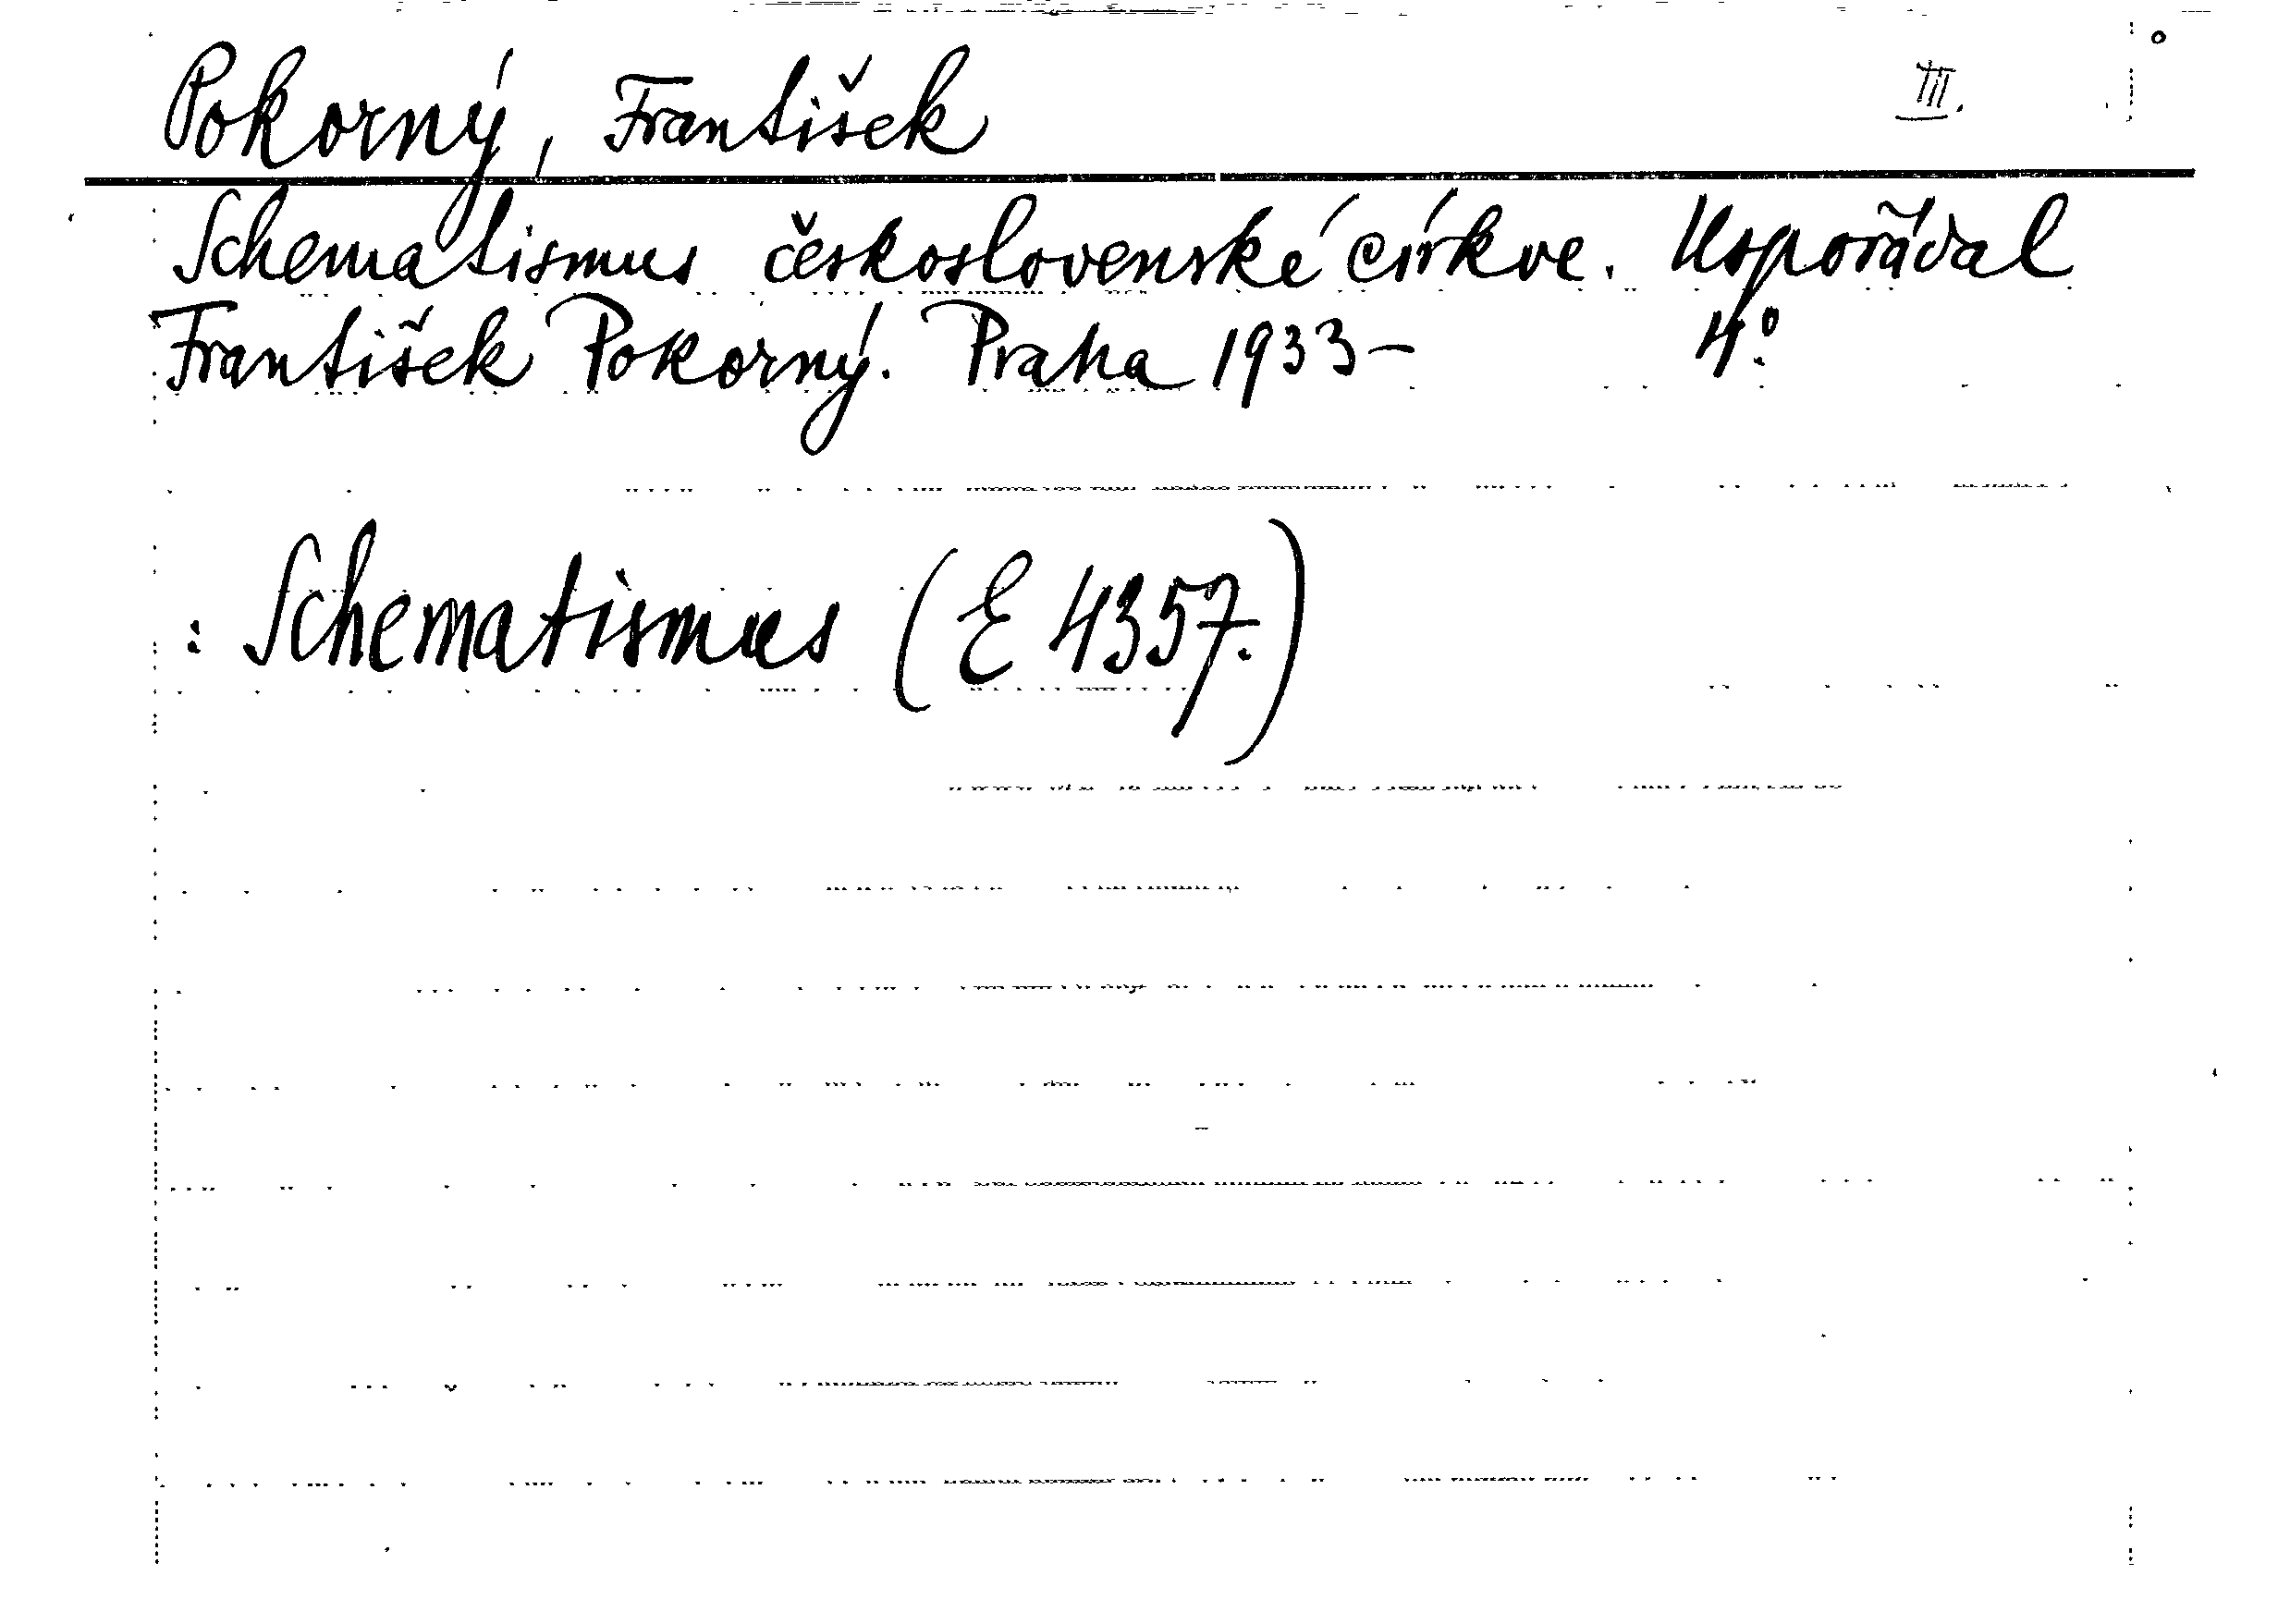 Pokorný, František III.
Schematismus československé církve. Uspořádal
František Pokorný. Praha 1933- 4°.
: Schematismus (E 4357.)